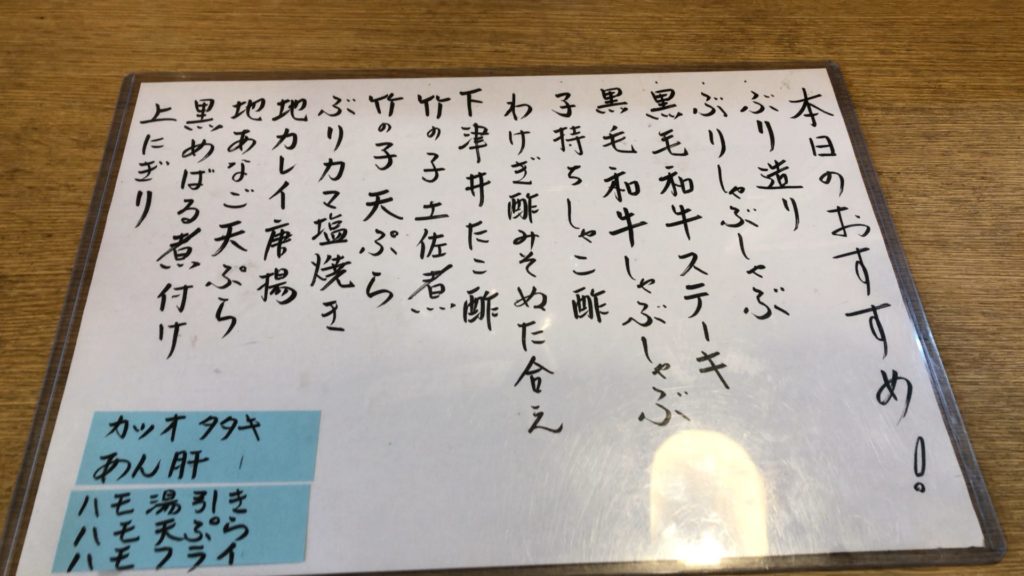 本日のおすすめ!
ぶり造り
ぶりしゃぶしゃぶ
黒毛和牛ステーキ
黒毛和牛しゃぶしゃぶ
子持ちしゃこ酢
わけぎ酢みそぬた合え
下津井たこ酢
竹の子土佐煮
竹の子天ぷら
ぶりカマ塩焼き
地カレイ唐揚
地あなご天ぷら
黒めばる煮付け
上にぎり
カツオタタキ
あん肝
ハモ湯引き
ハモ天ぷら
ハモフライ